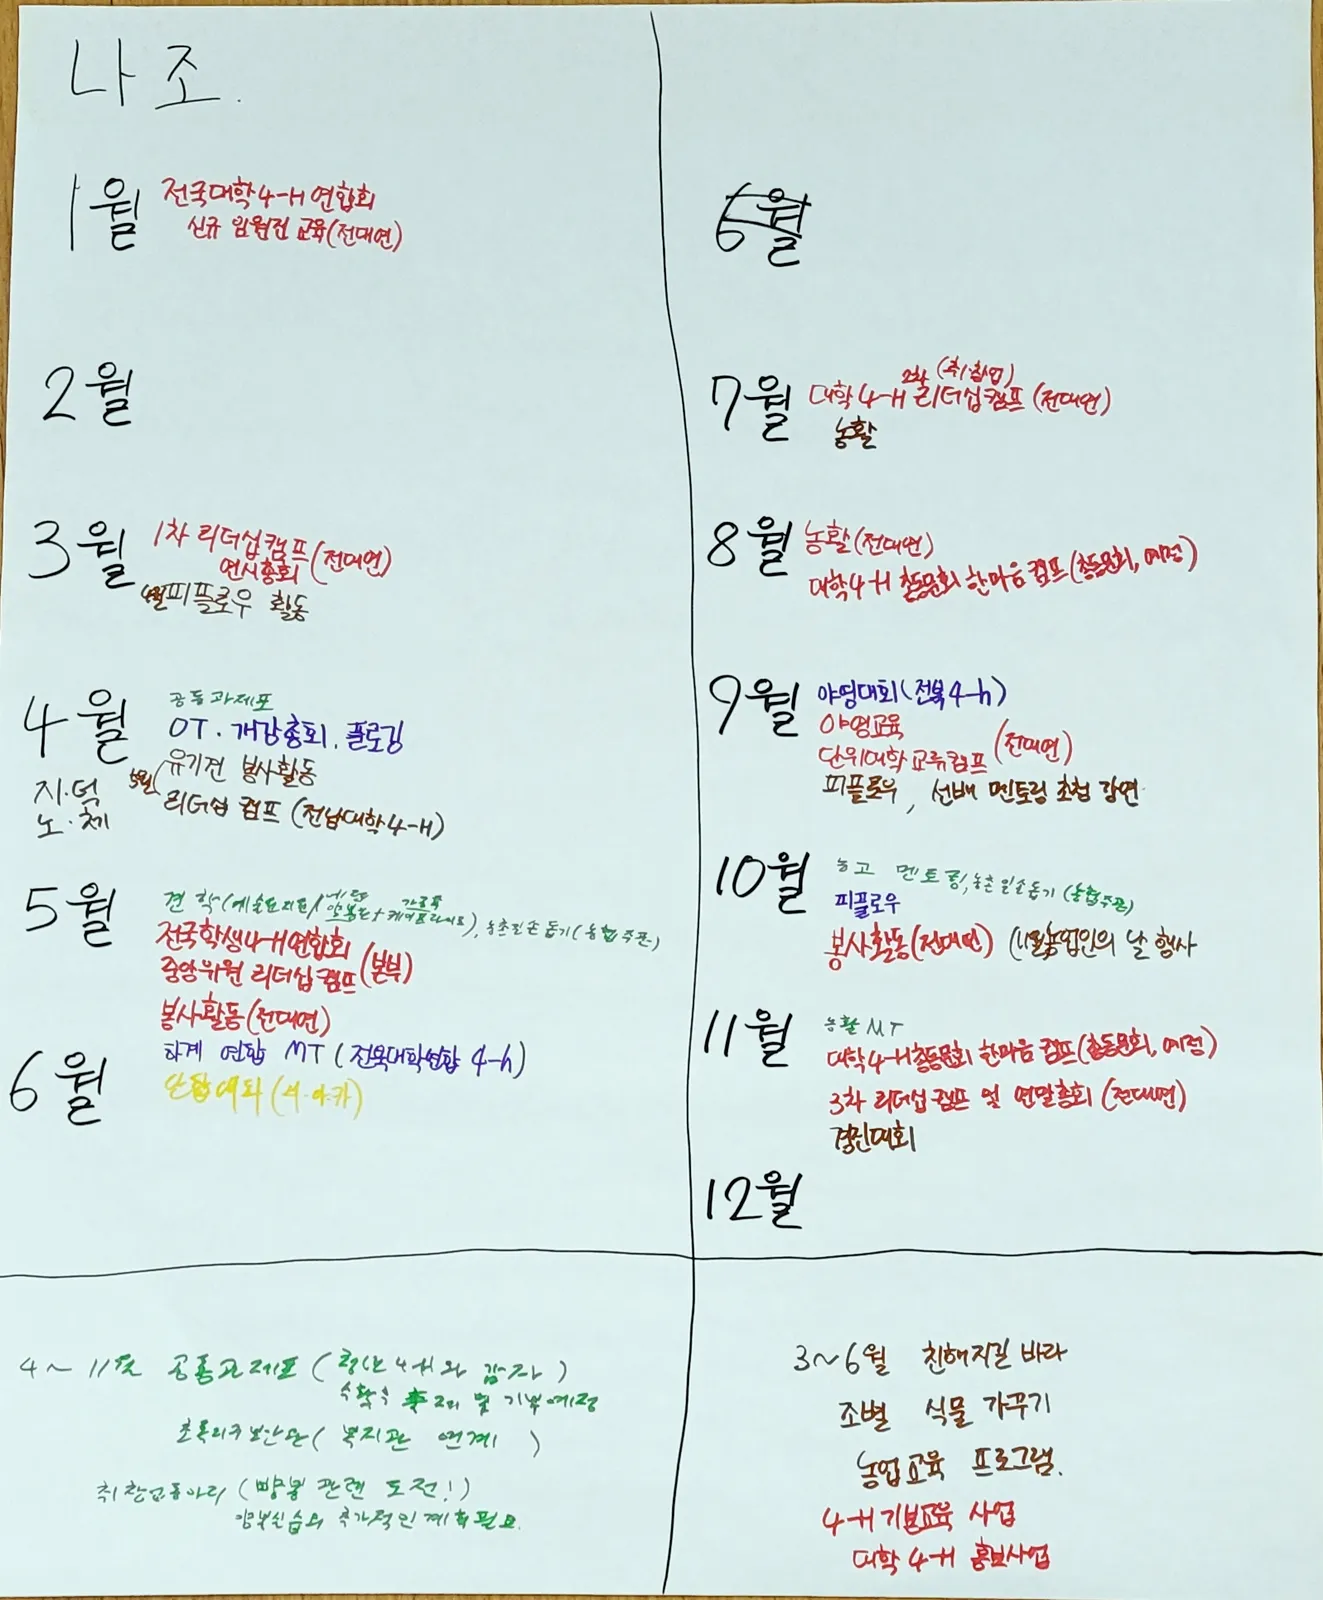 나 조.
1월 전국대학4-H 연합회
신규 임원진 교육(전대연)
2월
3월 1차 리더십캠프 (전대연)
연시총회
4월 피플로우 활동
4월 공동과제포
OT. 개강총회. 플로깅
지·덕
노·체
5월 유기견 봉사활동
리더십 캠프 (전남대학4-H)
5월 견학
농촌일손돕기(농협주관)
전국학생4-H연합회
중앙위원 리더십캠프(본부)
봉사활동(전대연)
6월 하계 연합 MT (전북대학연합 4-h)
6월
7월 2차 (취·창업)
대학4-H 리더십캠프 (전대연)
농활
8월 농활(전대연)
대학4-H 총동문회 한마음 캠프(총동문회, 예정)
9월 야영대회(전북4-h)
야영교육
단위대학 교류캠프 (전대연)
피플로우, 선배 멘토링 초청 강연
10월 농고 멘토링, 농촌일손돕기 (농협주관)
피플로우
봉사활동(전대연) (11월농업인의 날 행사
11월 농활 MT
대학4-H총동문회 한마음 캠프(총동문회, 예정)
3차 리더십캠프 및 연말총회 (전대연)
경진대회
12월
4~11월 공동과제포 (청년4-H와 감자)
수확 수 및 기부예정
(복지관 연계)
취창업동아리 (양봉 관련 도전!)
추가적인 계획필요.
3~6월 친해지길 바라
조별 식물 가꾸기
농업교육 프로그램.
4-H기본교육 사업
대학 4-H 홍보사업